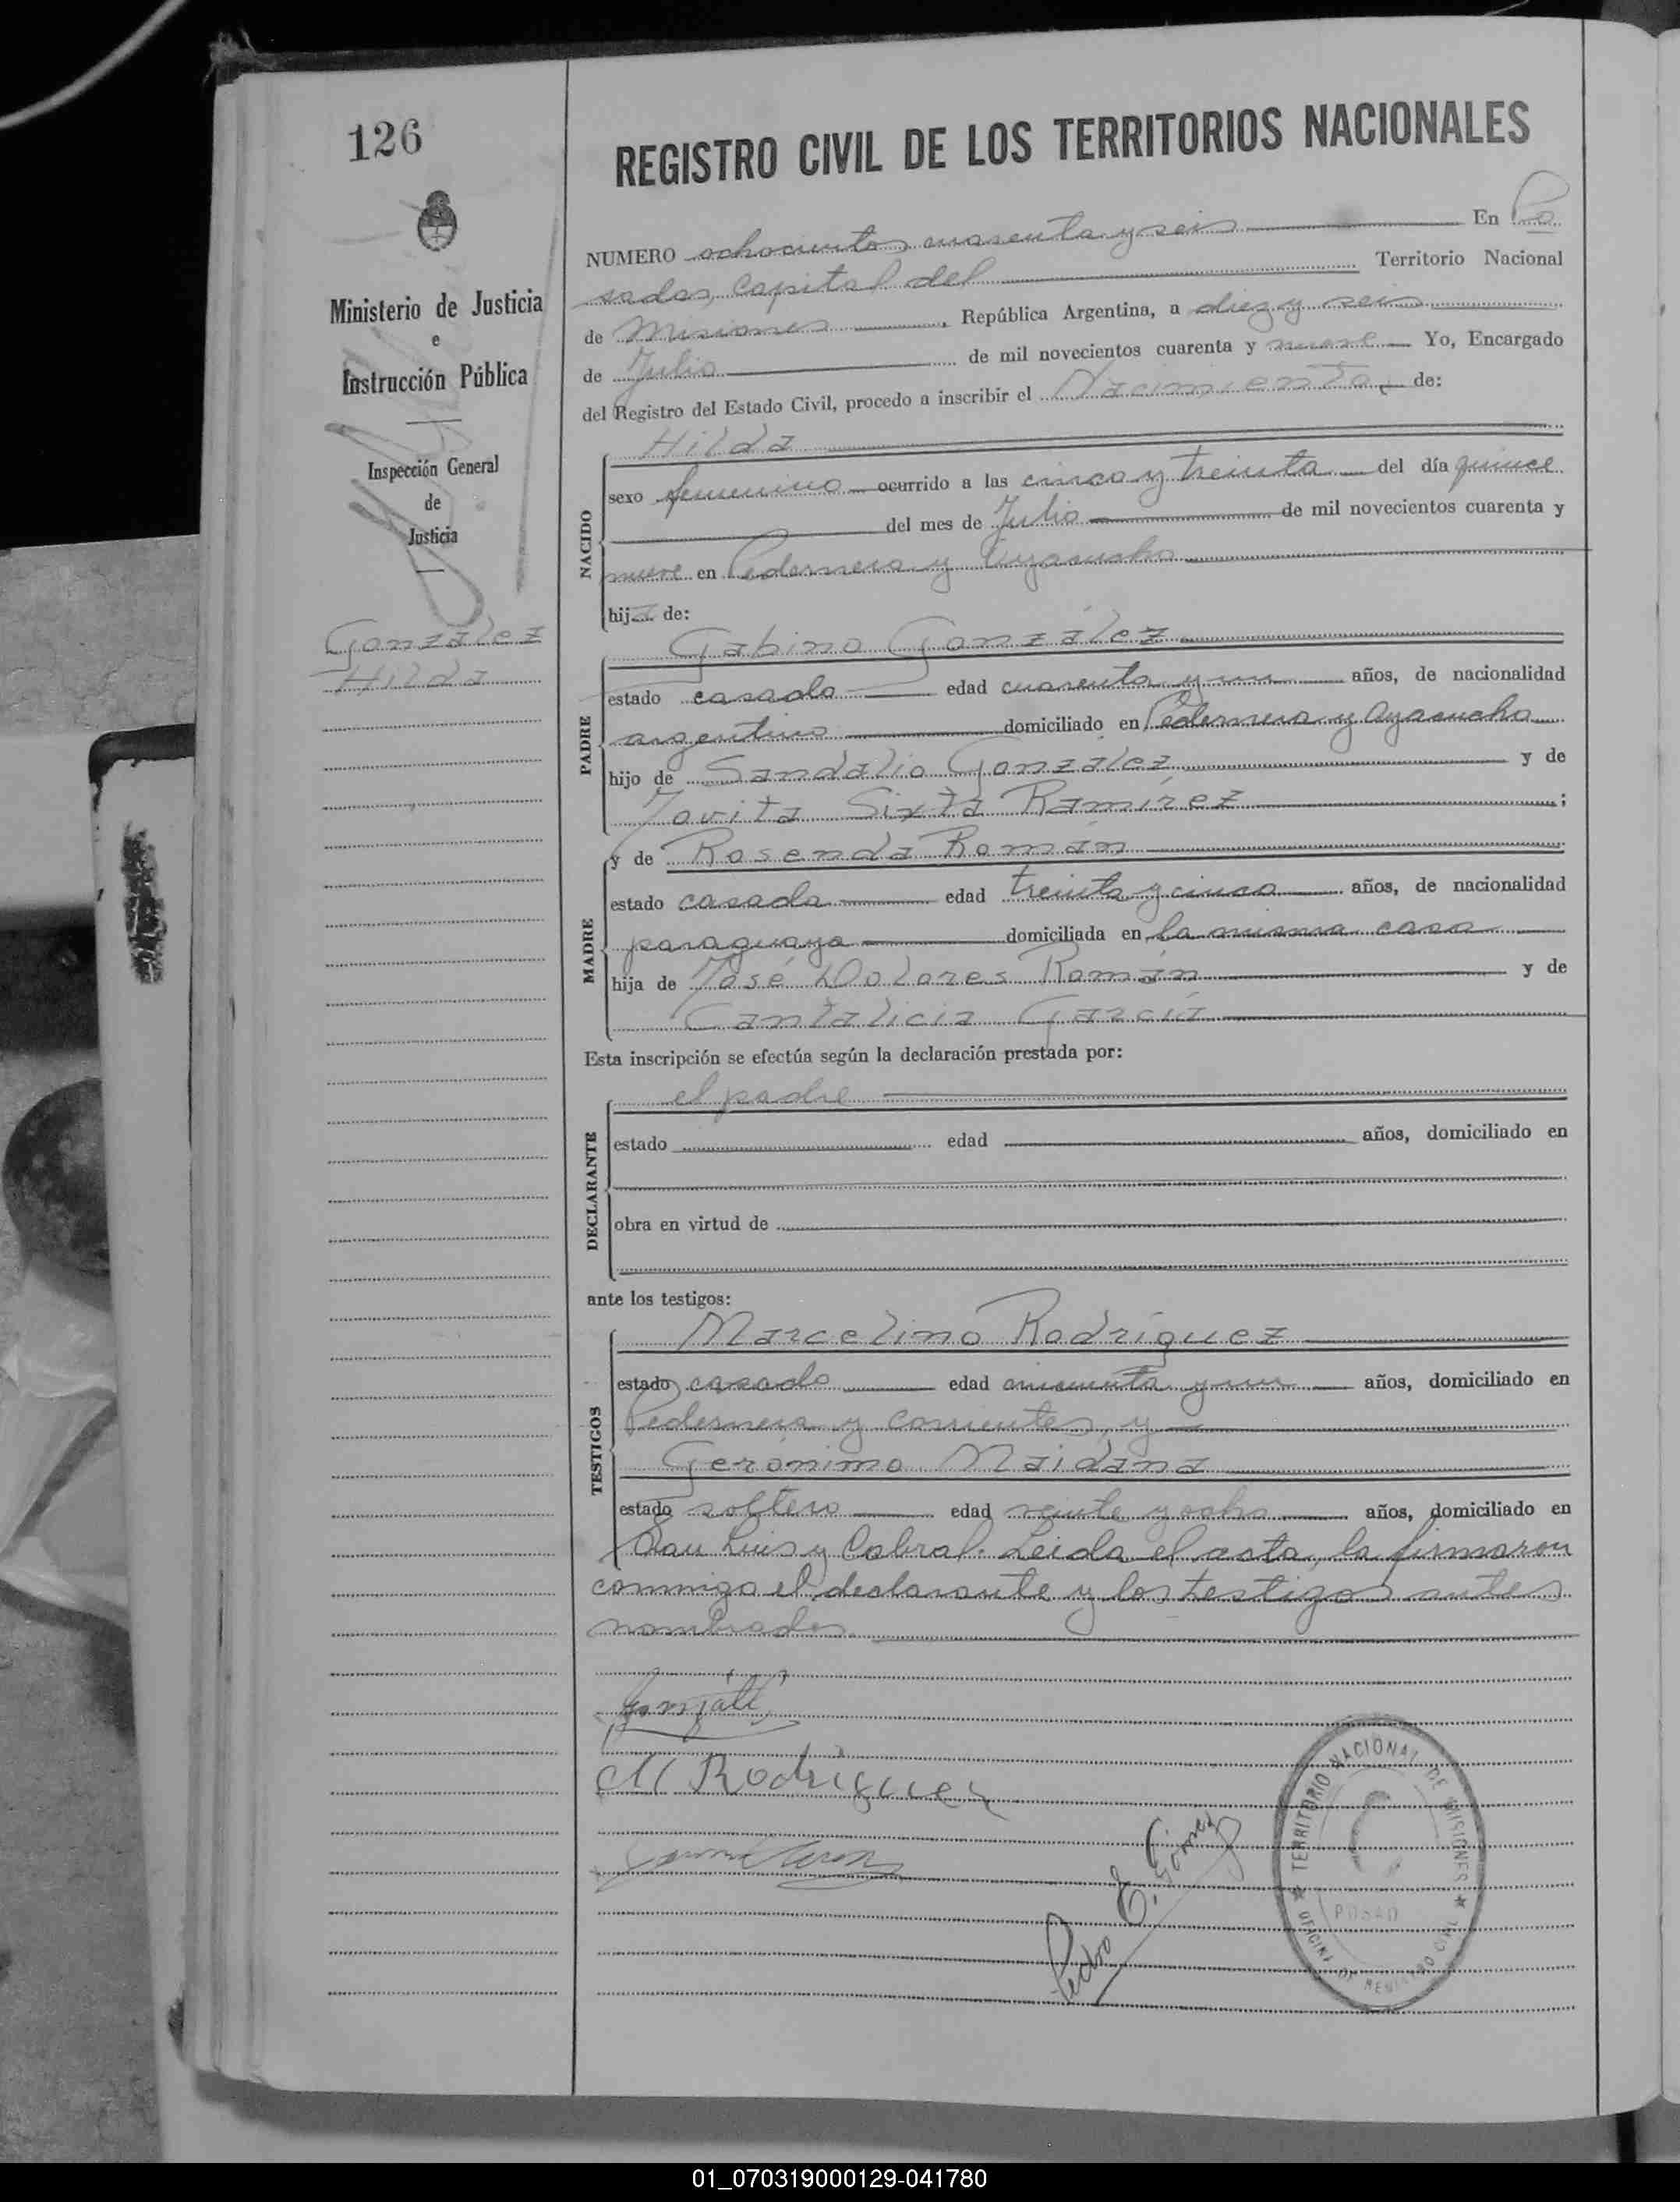 126
REGISTRO CIVIL DE LOS TERRITORIOS NACIONALES
NUMERO ochocientos cuarenta y seis En Po
sadas, Capital del Territorio Nacional
de Misiones, República Argentina, a diez y seis
de Julio de mil novecientos cuarenta y nueve Yo, Encargado
del Registro del Estado Civil, procedo a inscribir el Nacimiento de:
Ministerio de Justicia
e
Instrucción Pública
Inspección General
de
Justicia
González
Hilda
NACIDO
Hilda
sexo femenino ocurrido a las cinco y treinta del día quince
del mes de Julio de mil novecientos cuarenta y
nueve en Pedernera y Ayacucho
hija de:
PADRE
Gabino González
estado casado edad cuarenta y un años, de nacionalidad
argentino domiciliado en Pedernera y Ayacucho
hijo de Sandalio González y de
Jovita Sixta Ramírez;
MADRE
y de Rosenda Román
estado casada edad treinta y cinco años, de nacionalidad
paraguaya domiciliada en la misma casa
hija de José Dolores Román y de
Cantalicia García
Esta inscripción se efectúa según la declaración prestada por:
DECLARANTE
el padre
estado edad años, domiciliado en
obra en virtud de
ante los testigos:
TESTIGOS
Marcelino Rodríguez
estado casado edad cincuenta y un años, domiciliado en
Pedernera y Corrientes, y
Gerónimo Maidana
estado soltero edad veinte y ocho años, domiciliado en
San Luis y Cabral. Leida el acta, la firmaron
conmigo el declarante y los testigos antes
nombrados.
M Rodriguez
Pedro E. Gómez
TERRITORIO NACIONAL DE MISIONES
OFICINA DE REGISTRO CIVIL
01_070319000129-041780